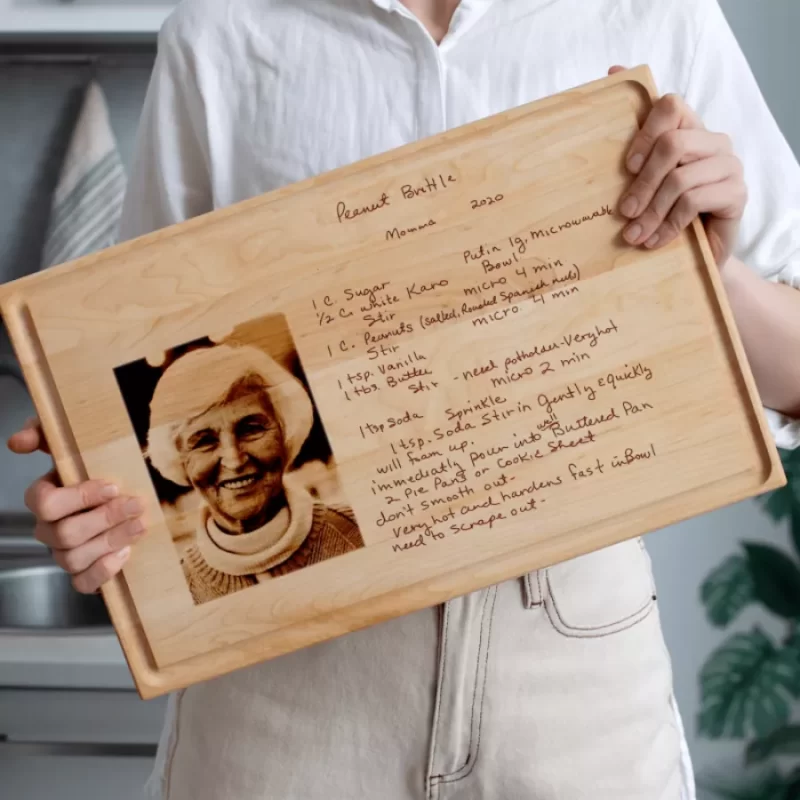 Peanut Brittle
Momma 2020
Put in lg. microwavable
Bowl
1 C. Sugar
1/2 C. white Karo micro 4 min
Stir
1 C. Peanuts (salted, Roasted Spanish nuts)
Stir micro. 4 min
1 tsp. Vanilla
1 tbs Butter
Stir - need potholder - Very hot
micro 2 min
1 tsp Soda Sprinkle
1 tsp. Soda Stir in Gently & quickly
will foam up.
immediatly pour into well Buttered Pan
2 Pie Pans or Cookie Sheet
don't smooth out -
Very hot and hardens fast in Bowl
need to scrape out -